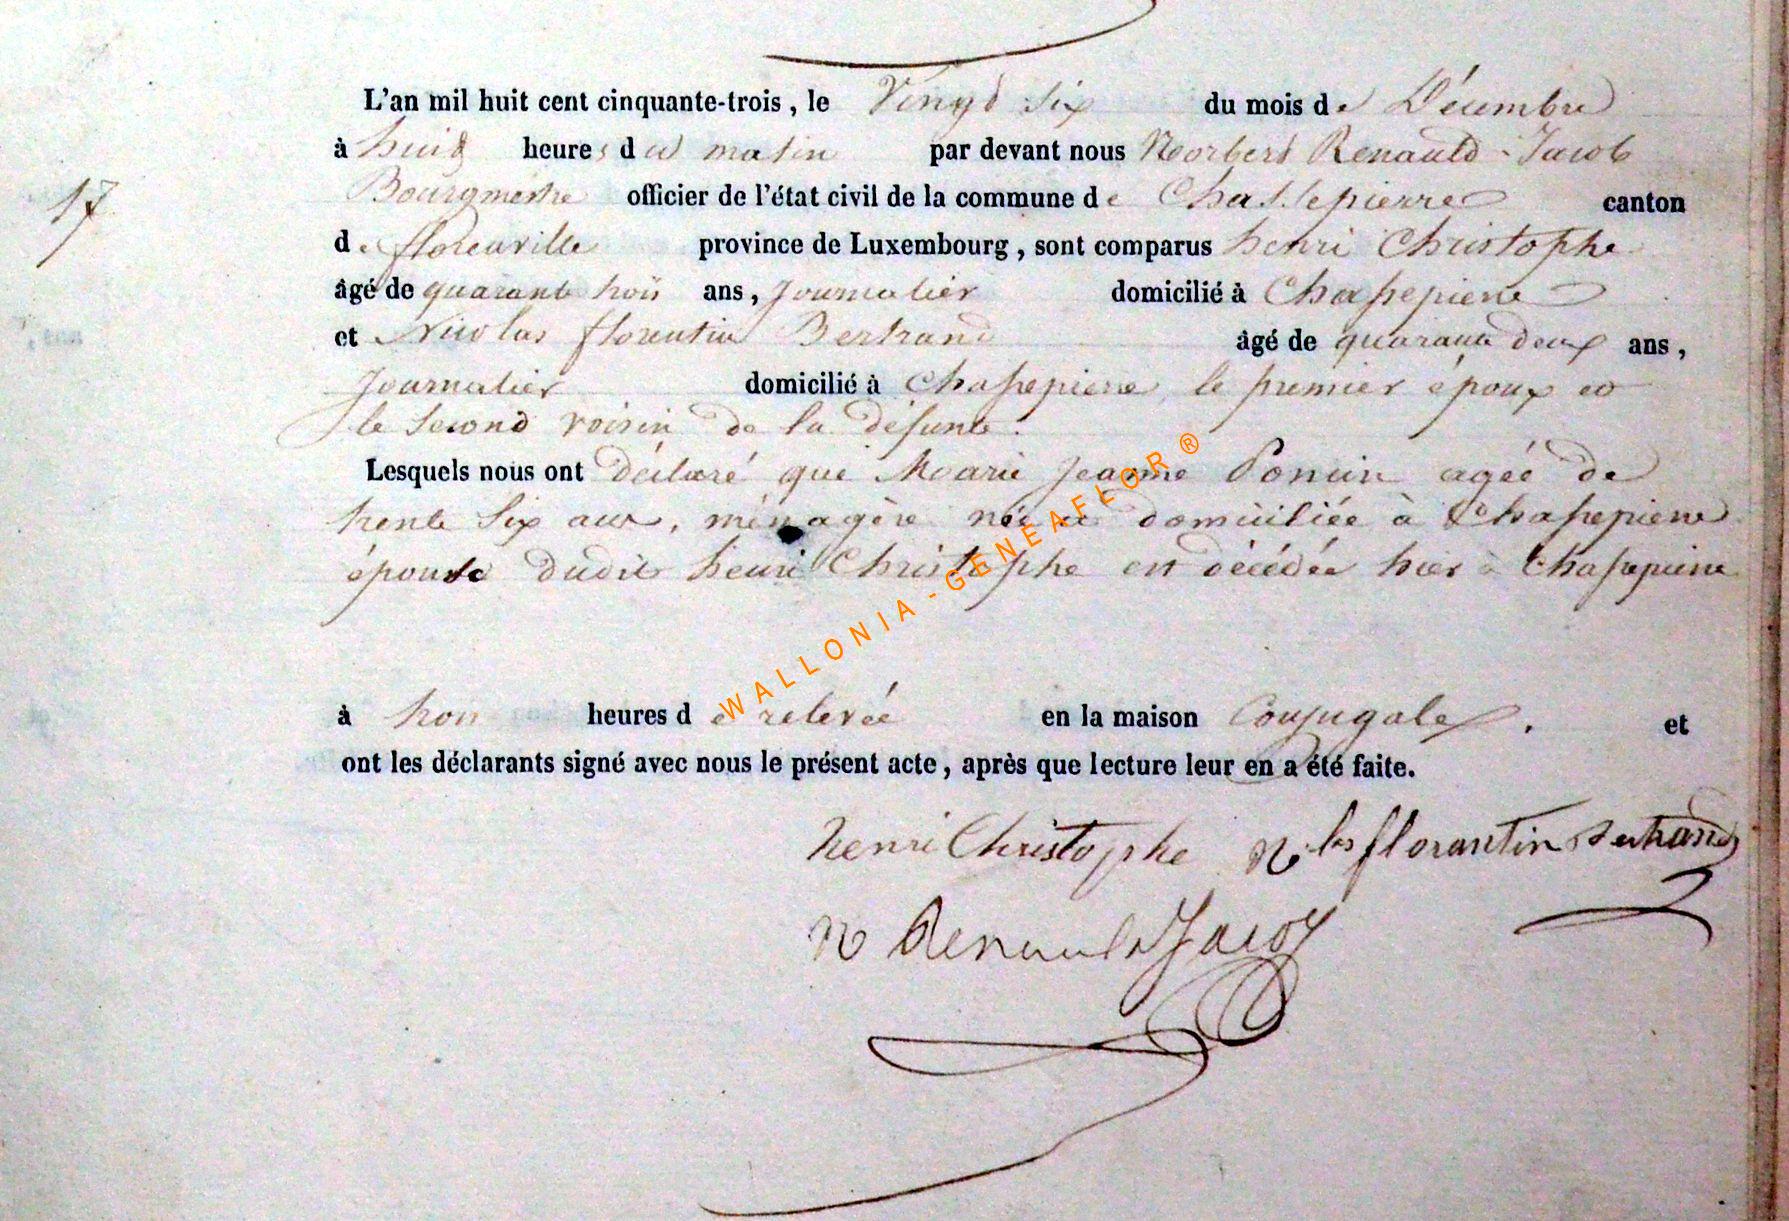 L'an mil huit cent cinquante-trois, le Vingt six du mois de Décembre
à huit heures du matin par devant nous Norbert Renauld-Jacob
17
Bourgmestre officier de l'état civil de la commune de Chassepierre canton
de florenville province de Luxembourg, sont comparus henri Christophe
âgé de quarante trois ans, Journalier domicilié à Chassepierre
et Nicolas florentin Bertrand âgé de quarante deux ans,
Journalier domicilié à Chassepierre, le premier époux et
le second voisin de la défunte.
Lesquels nous ont déclaré que Marie Jeanne Poncin agée de
trente six ans, ménagère née et domiciliée à Chassepierre
épouse dudit henri Christophe est décédée hier à Chassepierre
à trois heures de relevée en la maison Conjugale. et
ont les déclarants signé avec nous le présent acte, après que lecture leur en a été faite.
henri Christophe Nlas florantin Bertrand
N Renauld Jacob
WALLONIA - GENEAFLOR ®